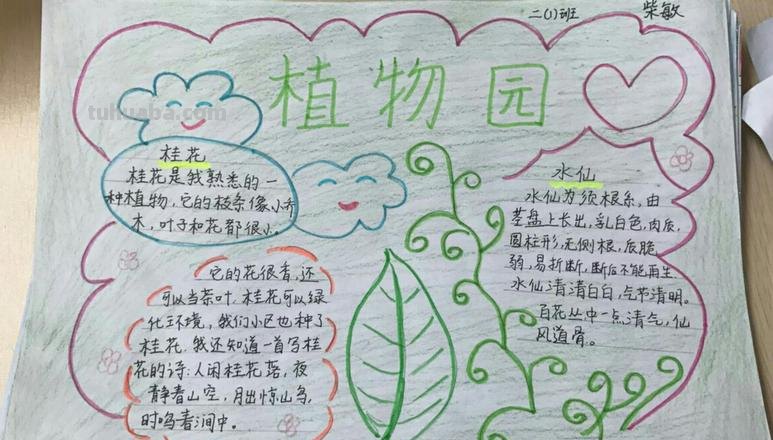 二(1)班 柴敏
植物园
tuhuaba.com
桂花
桂花是我熟悉的一
种植物,它的枝条像小乔
木,叶子和花都很小。
它的花很香,还
可以当茶叶.桂花可以绿
化环境,我们小区也种了
桂花.我还知道一首写桂
花的诗:人闲桂花落,夜
静春山空,月出惊山鸟,
时鸣春涧中。
水仙
水仙为须根系,由
茎盘上长出,乳白色,肉质,
圆柱形,无侧根,质脆
弱,易折断,断后不能再生
水仙清清白白,气节清明。
百花丛中一点清气,仙
风道骨。